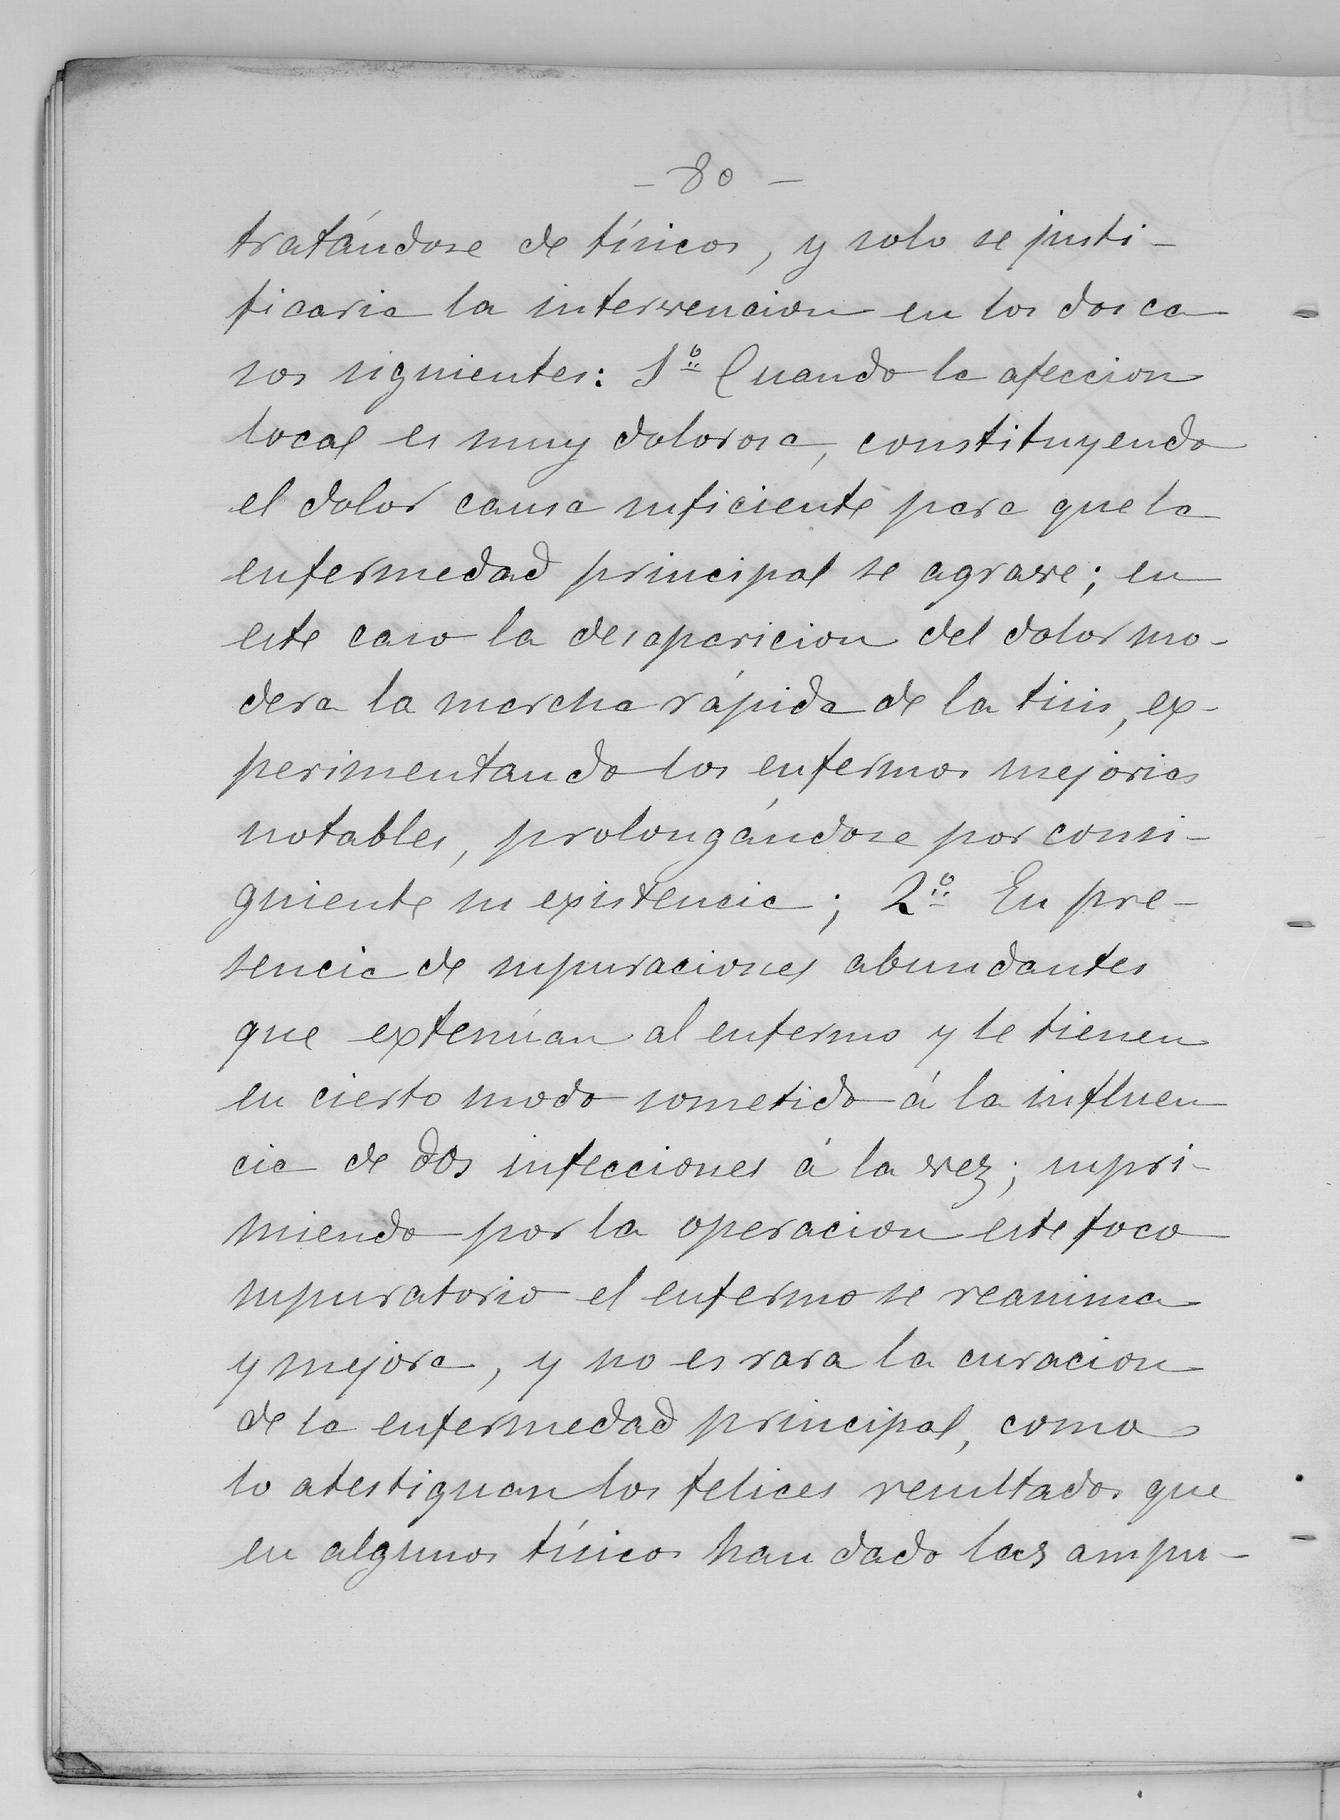 - 80 -
tratándose de tísicos, y solo se justi-
ficaria la intervencion en los dos ca
sos siguientes: 1º Cuando la afeccion
local es muy dolorosa, constituyendo
el dolor causa suficiente para que la
enfermedad principal se agrave; en
este caso la desaparicion del dolor mo-
dera la marcha rápida de la tisis, ex-
perimentando los enfermos mejorias
notables, prolongándose por consi-
guiente su existencia; 2º En pre-
sencia de supuraciones abundantes
que extenúan al enfermo y le tienen
en cierto modo sometido á la influen
cia de dos infecciones á la vez; supri-
miendo por la operacion este foco
supuratorio el enfermo se reanima
y mejora, y no es rara la curacion
de la enfermedad principal, como
lo atestiguan los felices resultados que
en algunos tísicos han dado las ampu-